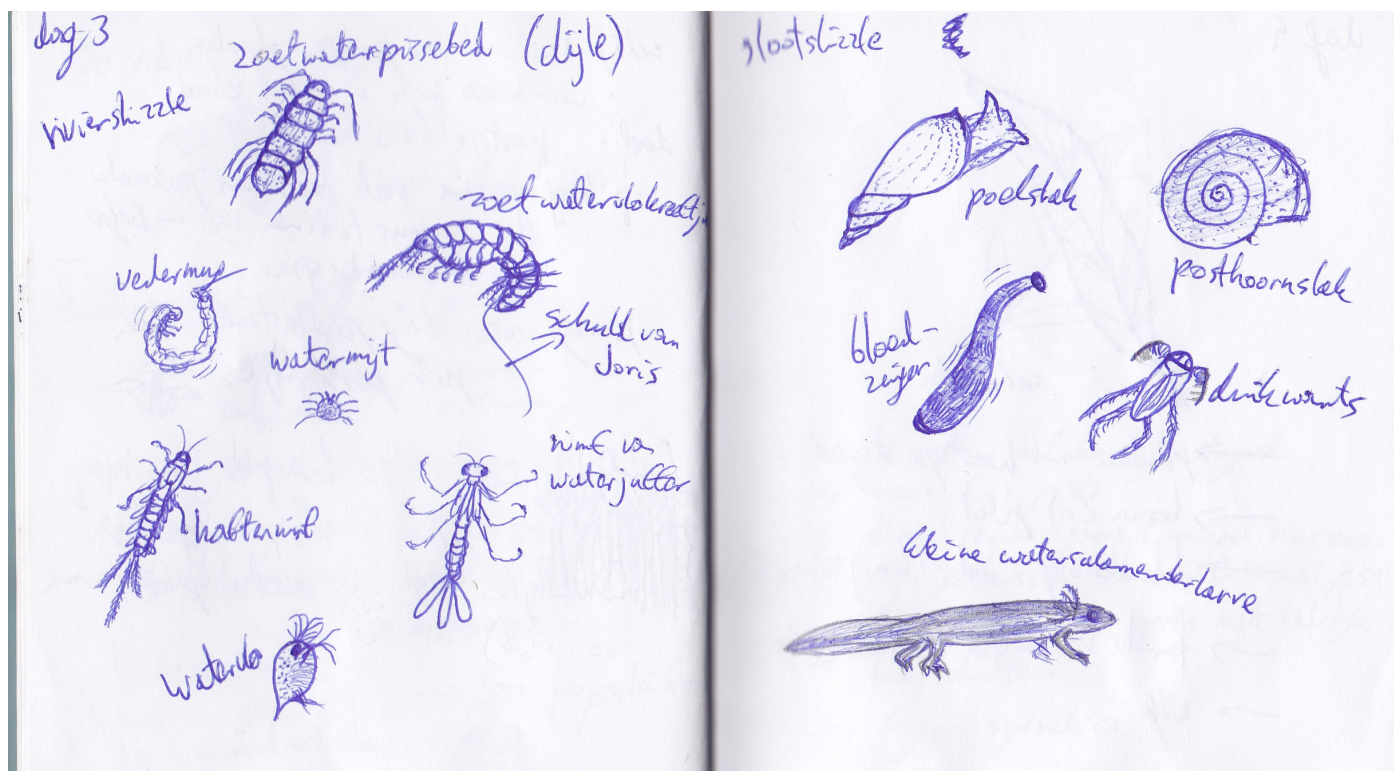 dag 3
zoetwaterpissebed (dijle)
rivierskizzle
zoetwatervlokreeftj
vedermug
schuld van
Joris
watermijt
nimf van
waterjuffer
haftnimf
watervlo
slootskizzle
poelslak
posthoornslak
bloed-
zuiger
duikwants
kleine watersalamanderlarve